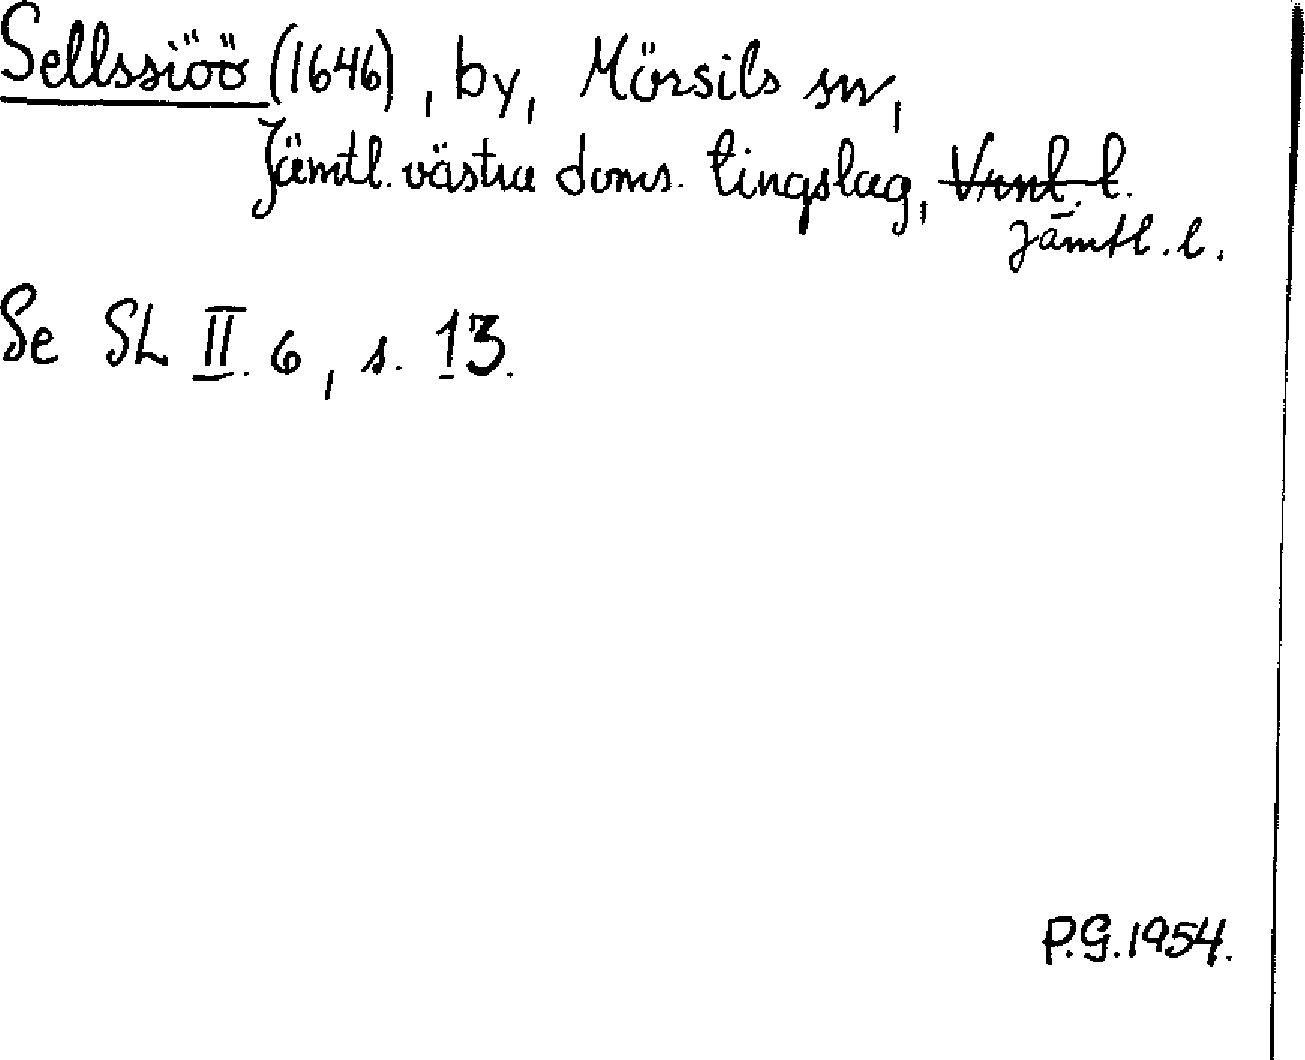 Sellssiöö (1646), by, Mörsils sn,
Jämtl. västra doms. tingslag, ~~Vrml. l.~~
Jämtl. l.
Se SL II. 6, s. 13.
P.G. 1954.